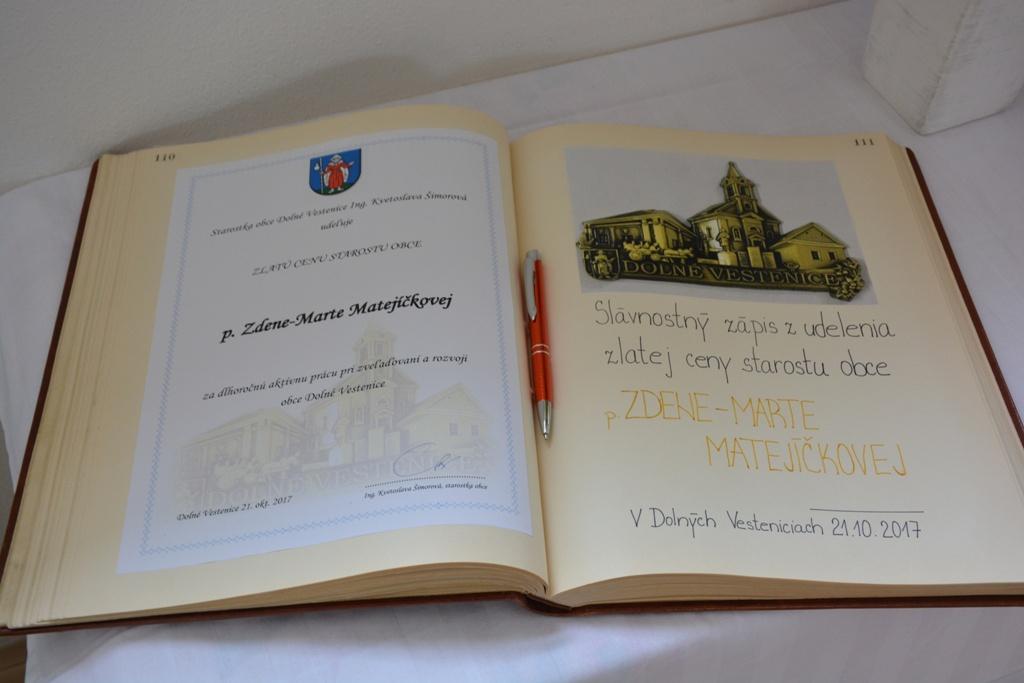 110
Starostka obce Dolné Vestenice Ing. Kvetoslava Šimorová
udeľuje
ZLATÚ CENU STAROSTU OBCE
p. Zdene-Marte Matejíčkovej
za dlhoročnú aktívnu prácu pri zveľaďovaní a rozvoji
obce Dolné Vestenice
DOLNÉ VESTENICE
Dolné Vestenice 21. okt. 2017
Ing. Kvetoslava Šimorová, starostka obce
111
DOLNÉ VESTENICE
Slávnostný zápis z udelenia
zlatej ceny starostu obce
p. ZDENE-MARTE
MATEJÍČKOVEJ
V Dolných Vesteniciach 21.10.2017